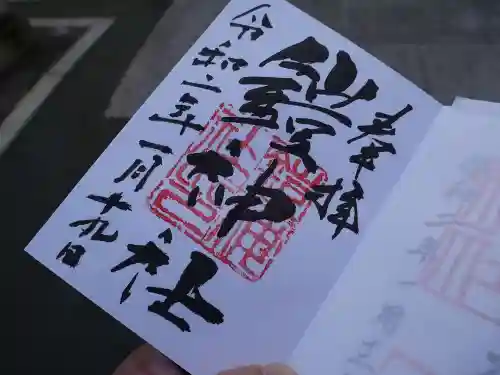 奉拝
鎧神社
令和二年一月十九日